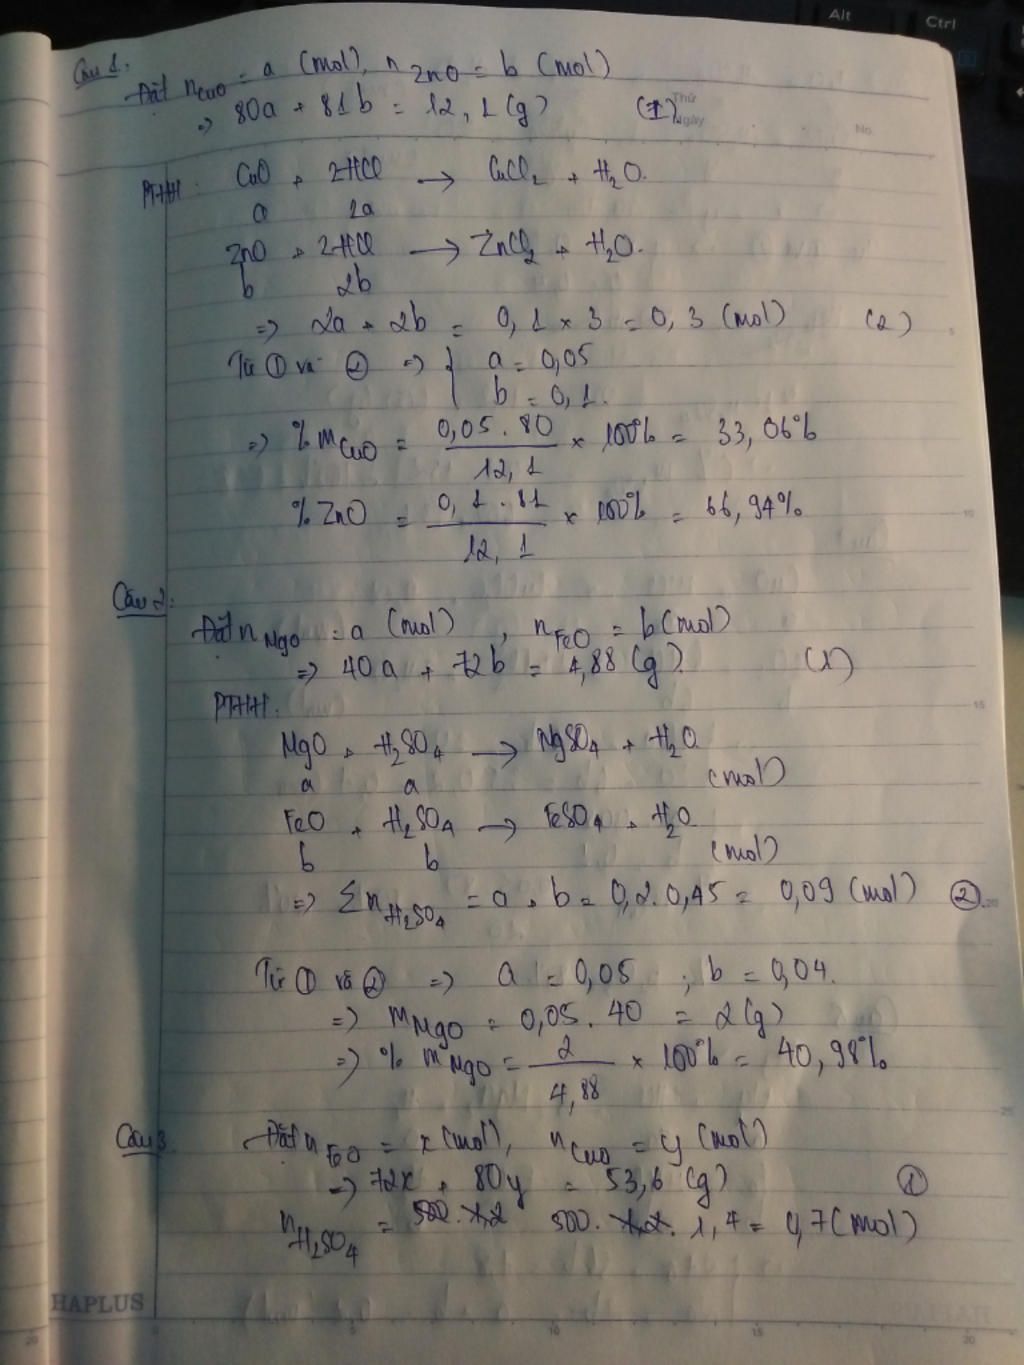 Alt
Ctrl
Câu 1:
Đặt nCuO = a (mol), nZnO = b (mol)
=> 80a + 81b = 12,1 (g) (1)
Thứ
Ngày
No.
PTHH: CuO + 2HCl → CuCl2 + H2O.
a 2a
ZnO + 2HCl → ZnCl2 + H2O.
b 2b
=> 2a + 2b = 0,1 × 3 = 0,3 (mol) (2)
Từ ① và ② => { a = 0,05
b = 0,1.
=> % mCuO = 0,05.80 / 12,1 × 100% = 33,06%
% ZnO = 0,1.81 / 12,1 × 100% = 66,94%
Câu 2:
Đặt nMgO = a (mol), nFeO = b (mol)
=> 40a + 72b = 4,88 (g) (1)
PTHH:
MgO + H2SO4 → MgSO4 + H2O
a a (mol)
FeO + H2SO4 → FeSO4 + H2O
b b (mol)
=> ΣnH2SO4 = a + b = 0,2.0,45 = 0,09 (mol) ②
Từ ① và ② => a = 0,05 ; b = 0,04.
=> mMgO = 0,05.40 = 2 (g)
=> % mMgO = 2 / 4,88 × 100% = 40,98%
Câu 3:
Đặt nFeO = x (mol), nCuO = y (mol)
=> 72x + 80y = 53,6 (g) ①
nH2SO4 = 500. 1,4 = 0,7 (mol)
HAPLUS
5
10
15
20
25
0 5 10 15 20